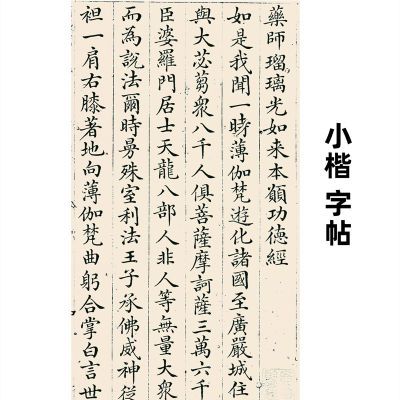 藥師瑠璃光如来本願功德經
如是我聞一時薄伽梵遊化諸國至廣嚴城住
與大苾芻衆八千人俱菩薩摩訶薩三萬六千
臣婆羅門居士天龍八部人非人等無量大衆
而為說法爾時曼殊室利法王子承佛威神從
袒一肩右膝著地向薄伽梵曲躬合掌白言世
小楷 字帖